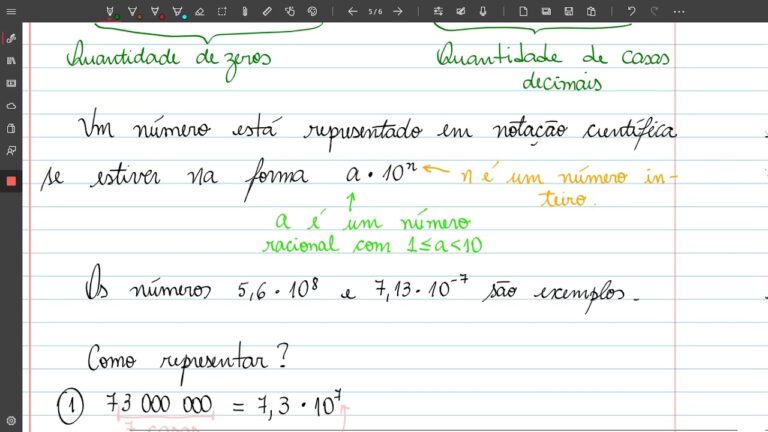 5/6
Quantidade de zeros
Quantidade de casas
decimais
Um número está representado em notação científica
se estiver na forma a · 10ⁿ ← n é um número in-
teiro.
a é um número
racional com 1≤a<10
Os números 5,6 · 10⁸ e 7,13 · 10⁻⁷ são exemplos.
Como representar?
① 73 000 000 = 7,3 · 10⁷
7 casas